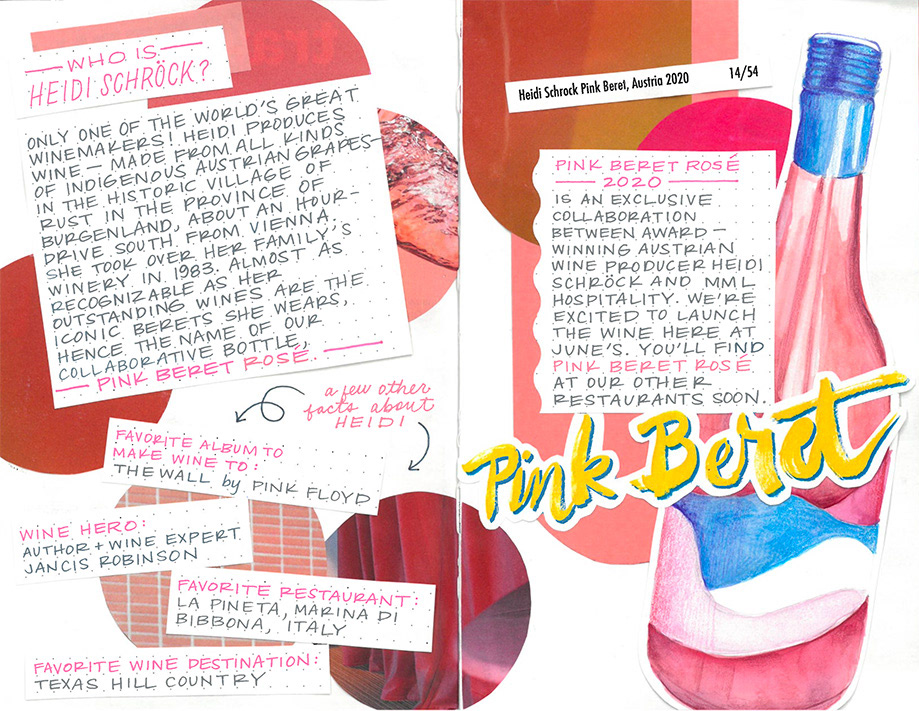 WHO IS
HEIDI SCHRÖCK?
ONLY ONE OF THE WORLD'S GREAT
WINEMAKERS! HEIDI PRODUCES
WINE — MADE FROM ALL KINDS
OF INDIGENOUS AUSTRIAN GRAPES —
IN THE HISTORIC VILLAGE OF
RUST IN THE PROVINCE OF
BURGENLAND, ABOUT AN HOUR-
DRIVE SOUTH FROM VIENNA.
SHE TOOK OVER HER FAMILY'S
WINERY IN 1983. ALMOST AS
RECOGNIZABLE AS HER
OUTSTANDING WINES ARE THE
ICONIC BERETS SHE WEARS,
HENCE THE NAME OF OUR
COLLABORATIVE BOTTLE,
PINK BERET ROSÉ.
a few other
facts about
HEIDI
FAVORITE ALBUM TO
MAKE WINE TO:
THE WALL by PINK FLOYD
WINE HERO:
AUTHOR + WINE EXPERT
JANCIS ROBINSON
FAVORITE RESTAURANT:
LA PINETA, MARINA DI
BIBBONA, ITALY
FAVORITE WINE DESTINATION:
TEXAS HILL COUNTRY
Heidi Schrock Pink Beret, Austria 2020 14/54
PINK BERET ROSÉ
2020
IS AN EXCLUSIVE
COLLABORATION
BETWEEN AWARD-
WINNING AUSTRIAN
WINE PRODUCER HEIDI
SCHRÖCK AND MML
HOSPITALITY. WE'RE
EXCITED TO LAUNCH
THE WINE HERE AT
JUNE'S. YOU'LL FIND
PINK BERET ROSÉ
AT OUR OTHER
RESTAURANTS SOON.
Pink Beret